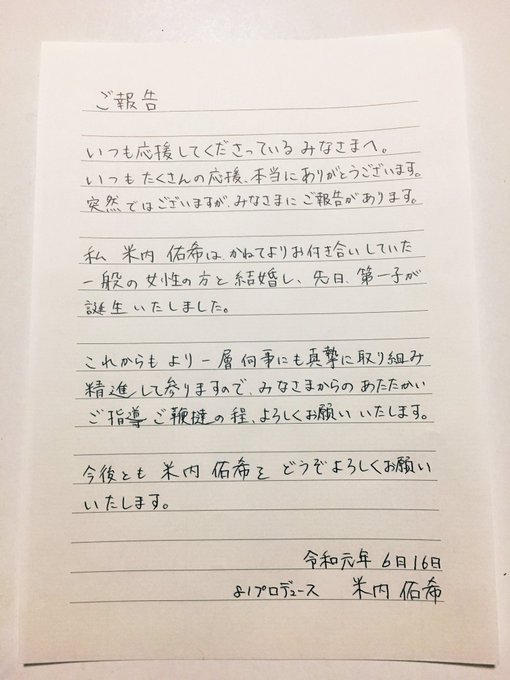 ご報告
いつも応援してくださっているみなさまへ。
いつもたくさんの応援、本当にありがとうございます。
突然ではございますが、みなさまにご報告があります。
私 米内 佑希は、かねてよりお付き合いしていた
一般の女性の方と結婚し、先日、第一子が
誕生いたしました。
これからもより一層何事にも真摯に取り組み
精進して参りますので、みなさまからのあたたかい
ご指導ご鞭撻の程、よろしくお願いいたします。
今後とも 米内 佑希を どうぞよろしくお願い
いたします。
令和元年 6月16日
81プロデュース 米内 佑希